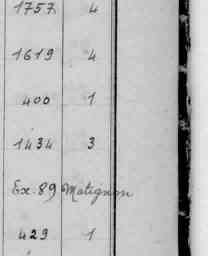 1757 4
1619 4
400 1
1434 3
Ex. 89 Matignon
429 1